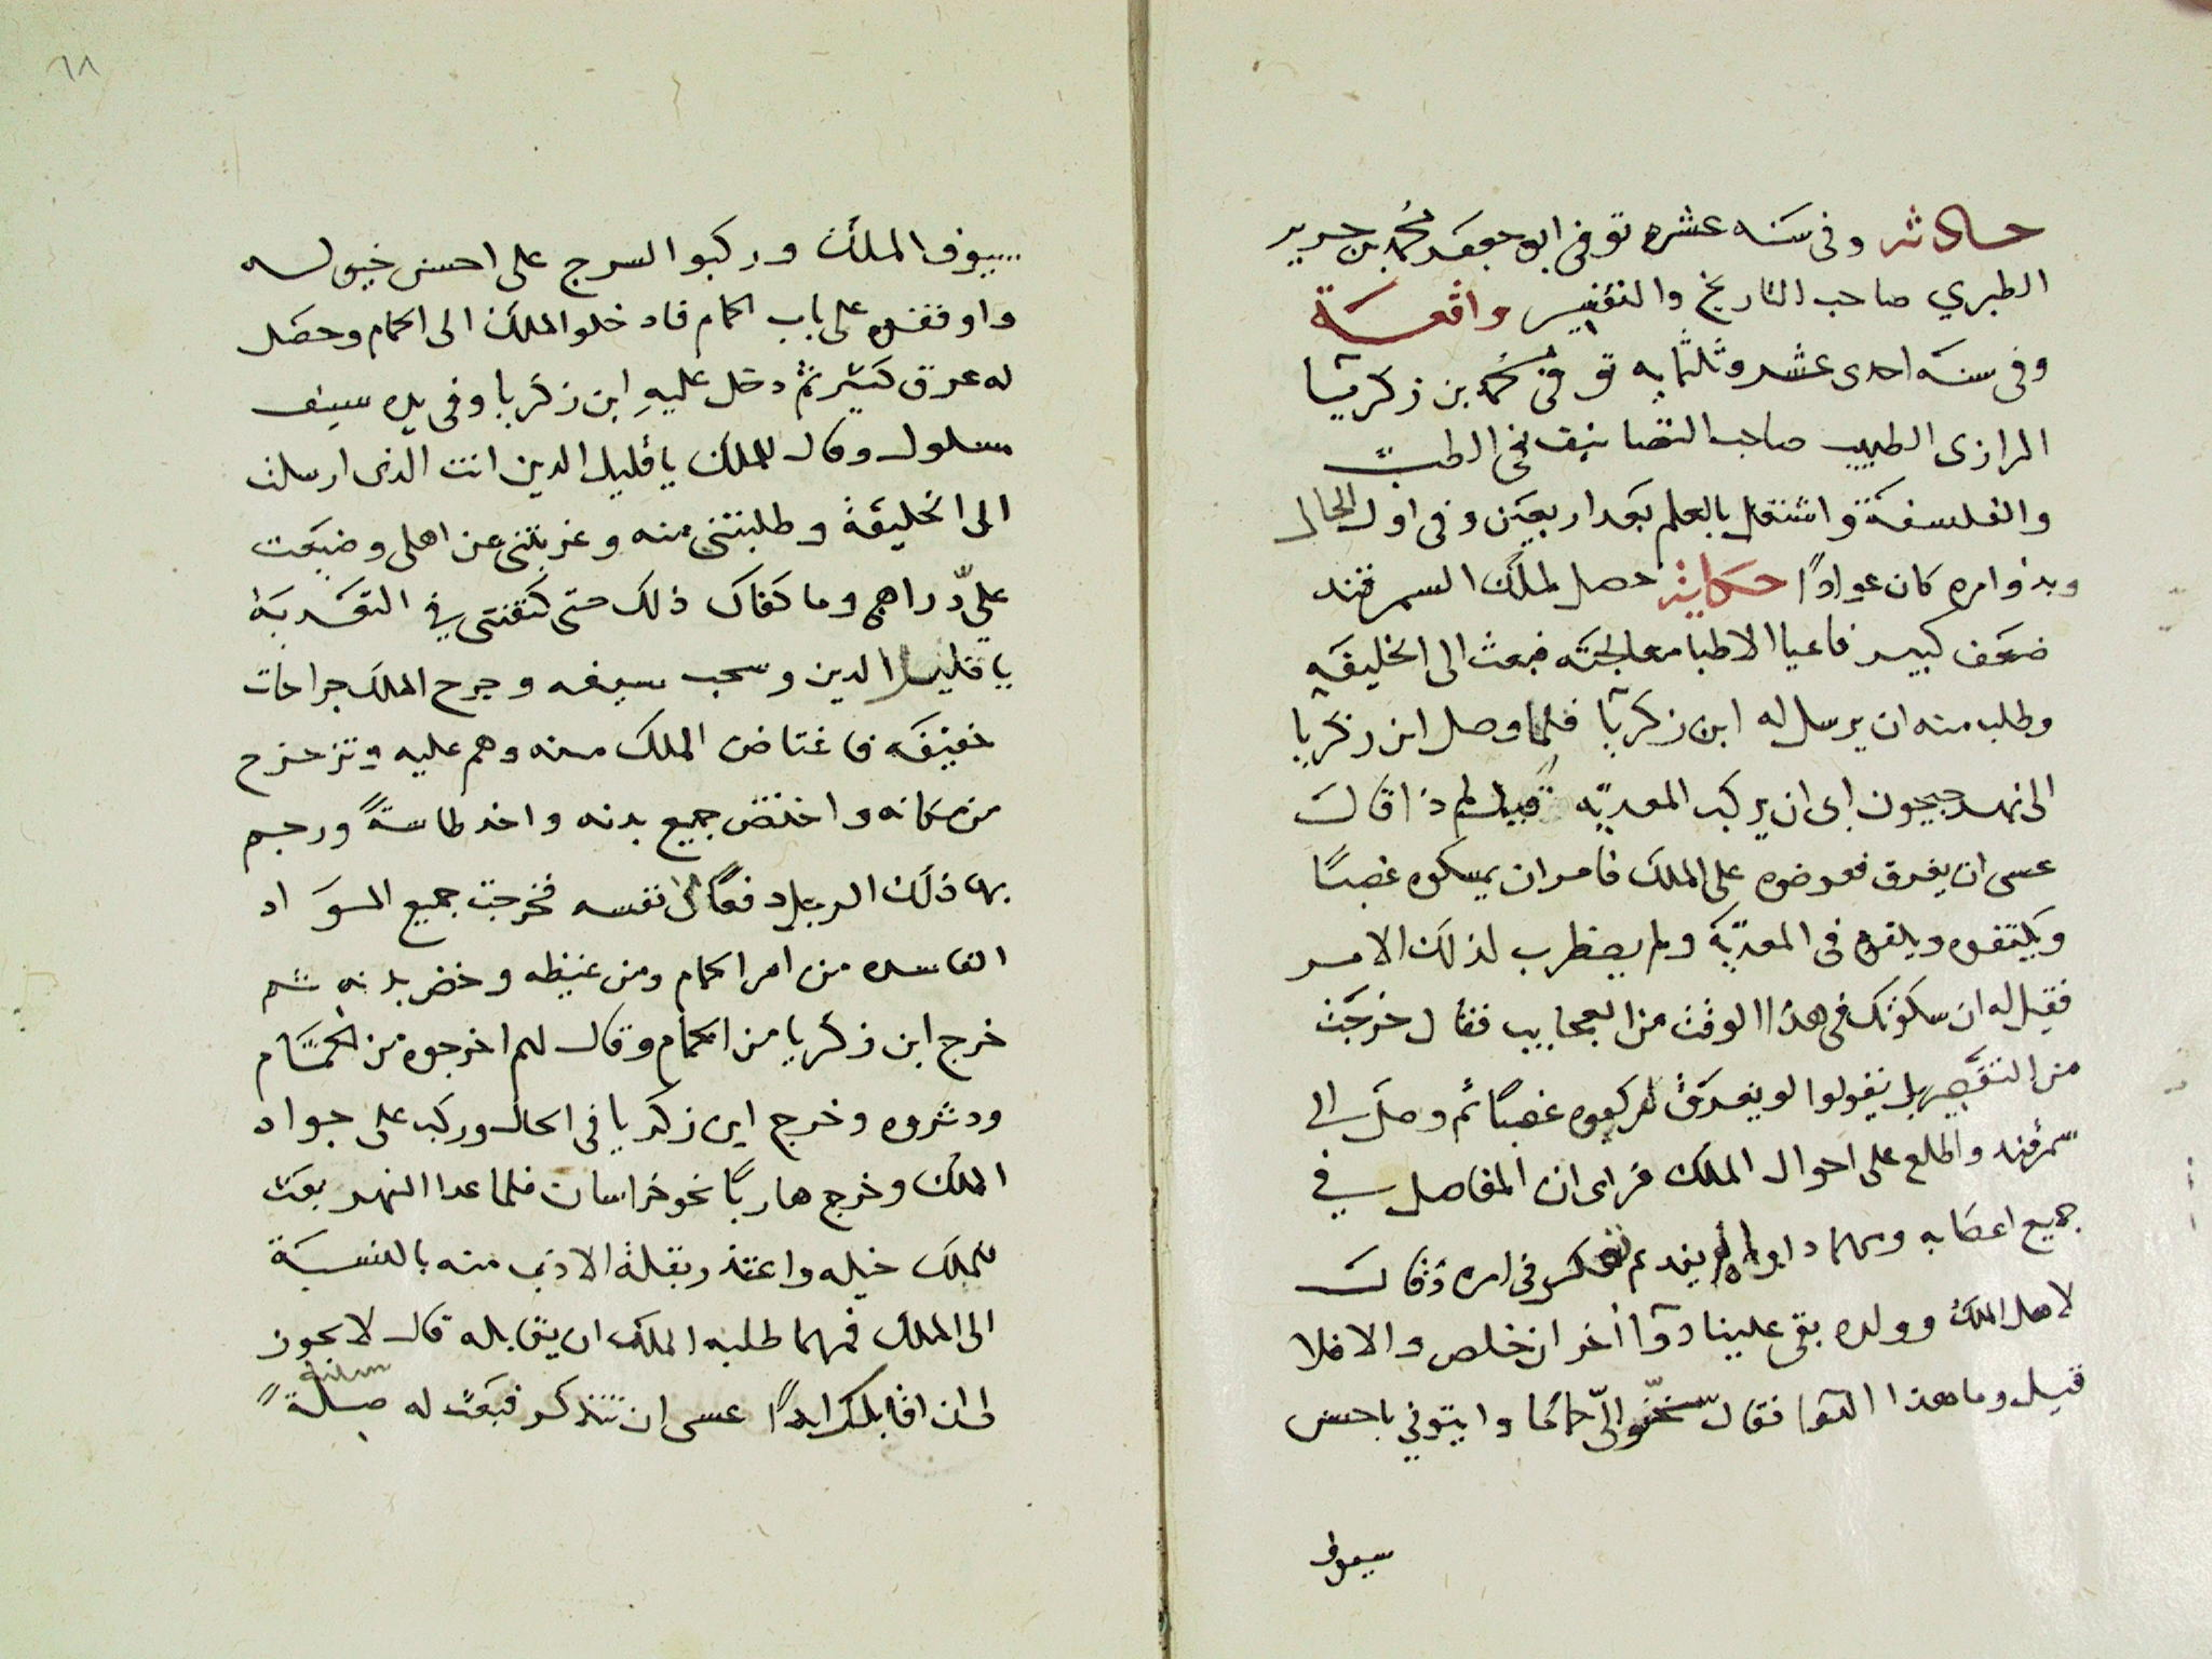 حادثه وفى سنه عشره توفى ابو جعفر محمد بن جرير
الطبري صاحب التاريخ والتفسير واقعة
وفى سنة احدى عشر وثلثمايه توفى محمد بن زكريا
الرازى الطبيب صاحب التصانيف فى الطب
والفلسفة واشتغل بالعلم بعد اربعين وفى اول الحال
وبدو امره كان عوادًا حكاية حصل لملك السمرقند
ضعف كبير فاعيا الاطبا معالجته فبعث الى الخليفه
وطلب منه ان يرسل له ابن زكريا فلما وصل ابن زكريا
الى نهر جيحون ابى ان يركب المعديه قيل لم ذا قال
عسى ان يغرق فعرضوه على الملك فامر ان يمسكوه غصبًا
ويكتفوه ويلقوه فى المعديّة ولم يضطرب لذلك الامر
فقيل له ان سكوتك فى هذا الوقت من العجايب فقال خرجت
من التقصير بل يقولوا لو يغرق اركبوه غصبًا ثم وصل الى
سمرقند واطلع على احوال الملك فراى ان المفاصل في
جميع اعضابه ومهما داوا لم يفد ثم تفكر فى امره وقال
لاهل الملك وولده بقى علينا دوا آخر ان خلص والا فلا
قيل وما هذا الدوا فقال سخّنوا اليّ حمامًا وايتوني باحسن
سيوف
سيوف الملك وركبوا السرج على احسن خيول له
واوقفوه على باب الحمام فادخلوا الملك الى الحمام وحصل
له عرق كتير ثم دخل عليهِ ابن زكريا وفى يده سيف
مسلول وقال للملك يا قليل الدين انت الذى ارسلت
الى الخليفة وطلبتنى منه وغربتنى عن اهلى وضيعت
عليّ دراهمى وما كفاك ذلك حتى كتفتنى في التعديه
يا قليل الدين وسحب سيفه وجرح الملك جراحات
خفيفه فاغتاض الملك منه وهم عليه وتزحزح
من مكانه واختض جميع بدنه واخد طاسةً ورجم
بها ذلك الرجل دفعًا عن نفسه فخرجت جميع المواد
الفاسده من امر الحمام ومن غيظه وخضر بدنه ثم
خرج ابن زكريا من الحمام وقال لهم اخرجوه من الحمّام
ودثروه وخرج ابن زكريا فى الحال وركب على جواد
الملك وخرج هاربًا نحو خراسان فلما عدا النهر بعت
للملك خيله واعتذر بقلة الادب منه بالنسبة
الى الملك فمهما طلبه الملك ان يقابله قال لا يجوز
لى ان اقابلك ابدًا عسى ان تتذكر فبعت له صلةً